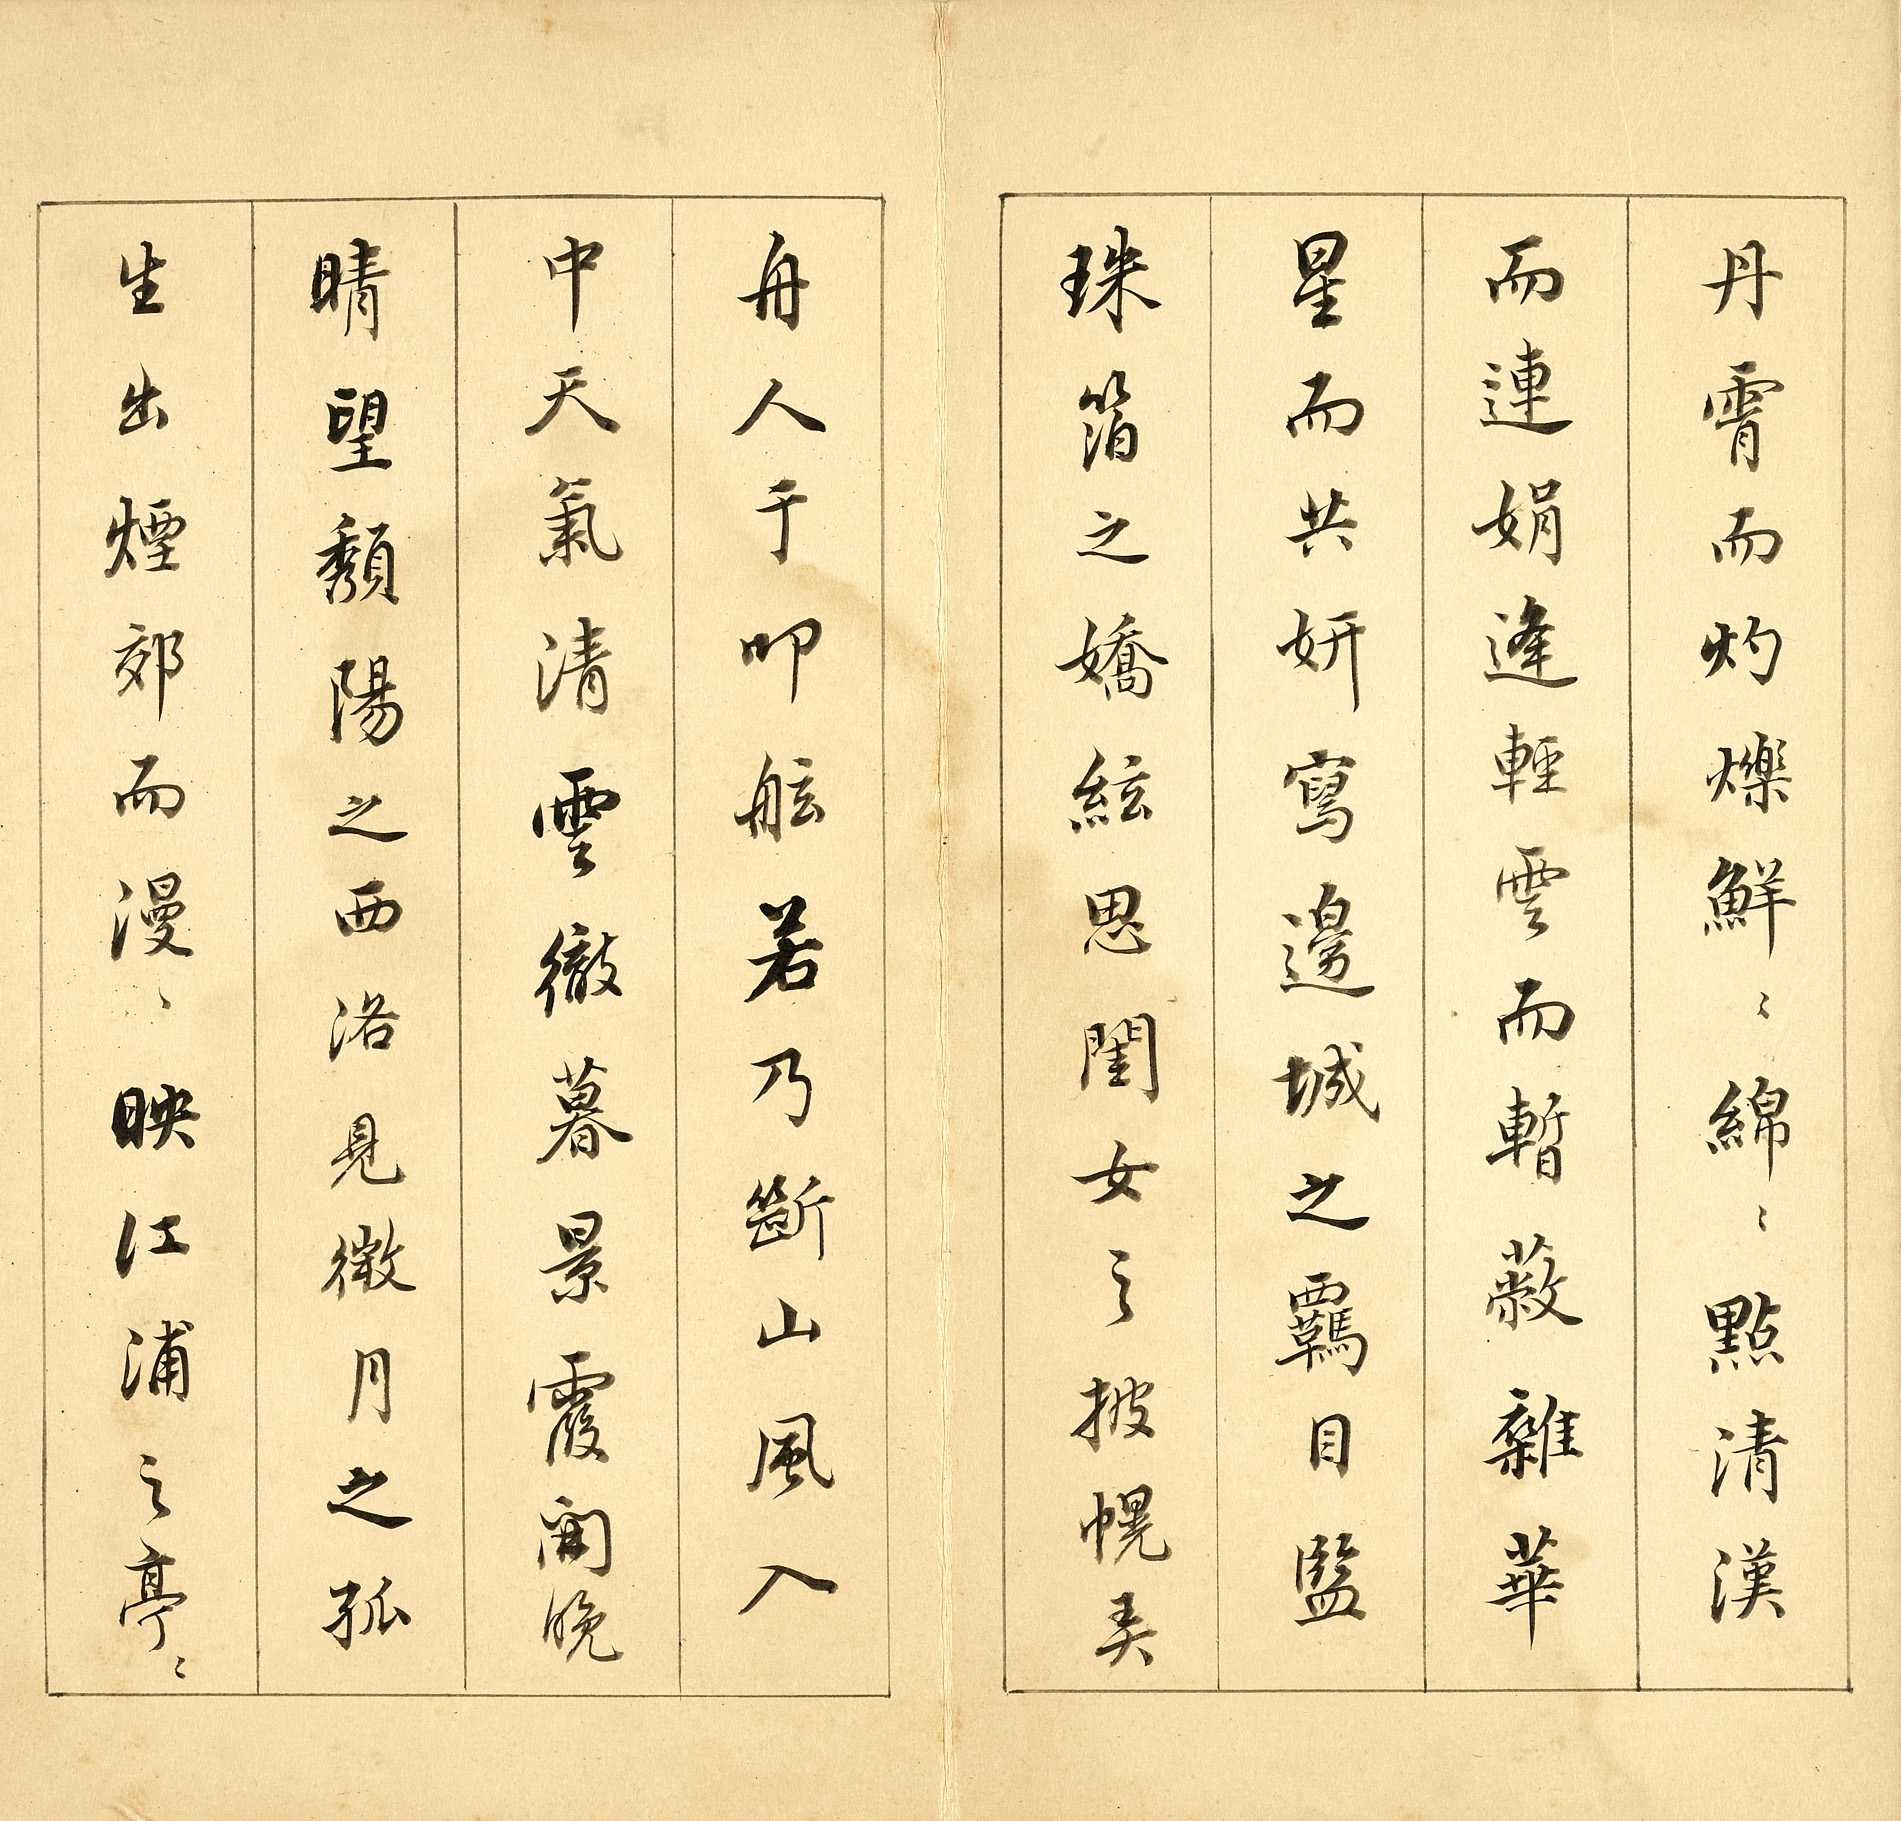 丹霄而灼爍鮮〻綿〻點清漢
而連娟逢輕雲而暫蔽雜華
星而共妍寫邊城之羈目監
珠箔之嬌絃思閨女之披幌美
舟人于叩舷若乃斷山風入
中天氣清雲徹暮景霞開晚
晴望頽陽之西洛見微月之孤
生出煙郊而漫〻映江浦之亭〻